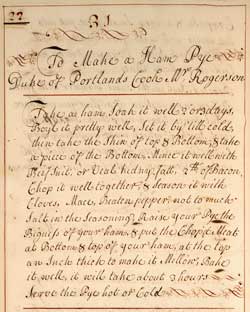 22
31
To Make a Ham Pye
Duke of Portlands Cook Mr Rogerson
Take a ham, Soak it well 2 or 3 days,
Boyl it pretty well, Set it by till cold,
then take the Skin of top & Bottom, & take
a piece of the Bottom, Mince it well with
Beef Suit, or Veal kidny fatt, of Bacon,
Chop it well together, & Season it with
Cloves, Mace, Beaten pepper, not to much
Salt in the Seasoning, Raise your Pye the
Bigness of your ham, & put the Chop'd Meat
at Bottom, & top of your ham, at the top
an Inch thick to make it Mellow, Bake
it well, it will take about 3 hours
Serve the Pye hot or Cold